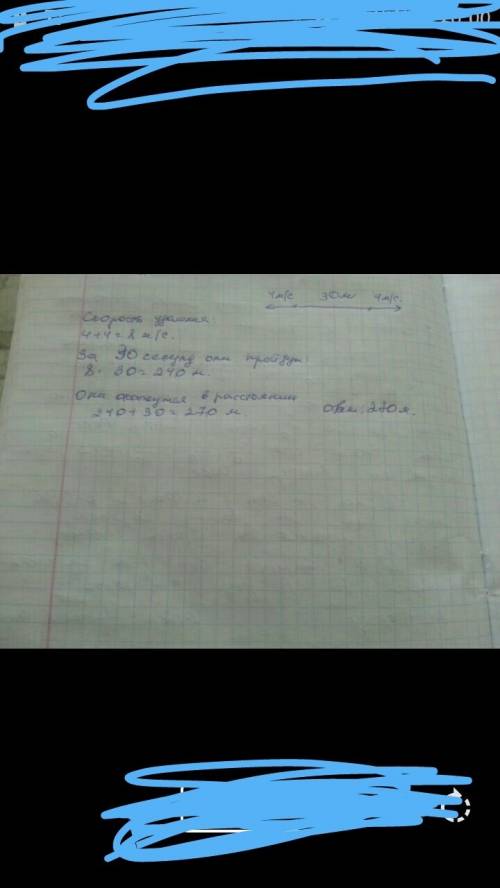 4м/с 30м 4м/с.
Скорость удаления:
4+4=8 м/с.
За 30 секунд они пройдут:
8 · 30 = 240 м.
Они окажутся в расстоянии
240 + 30 = 270 м. Ответ: 270 м.